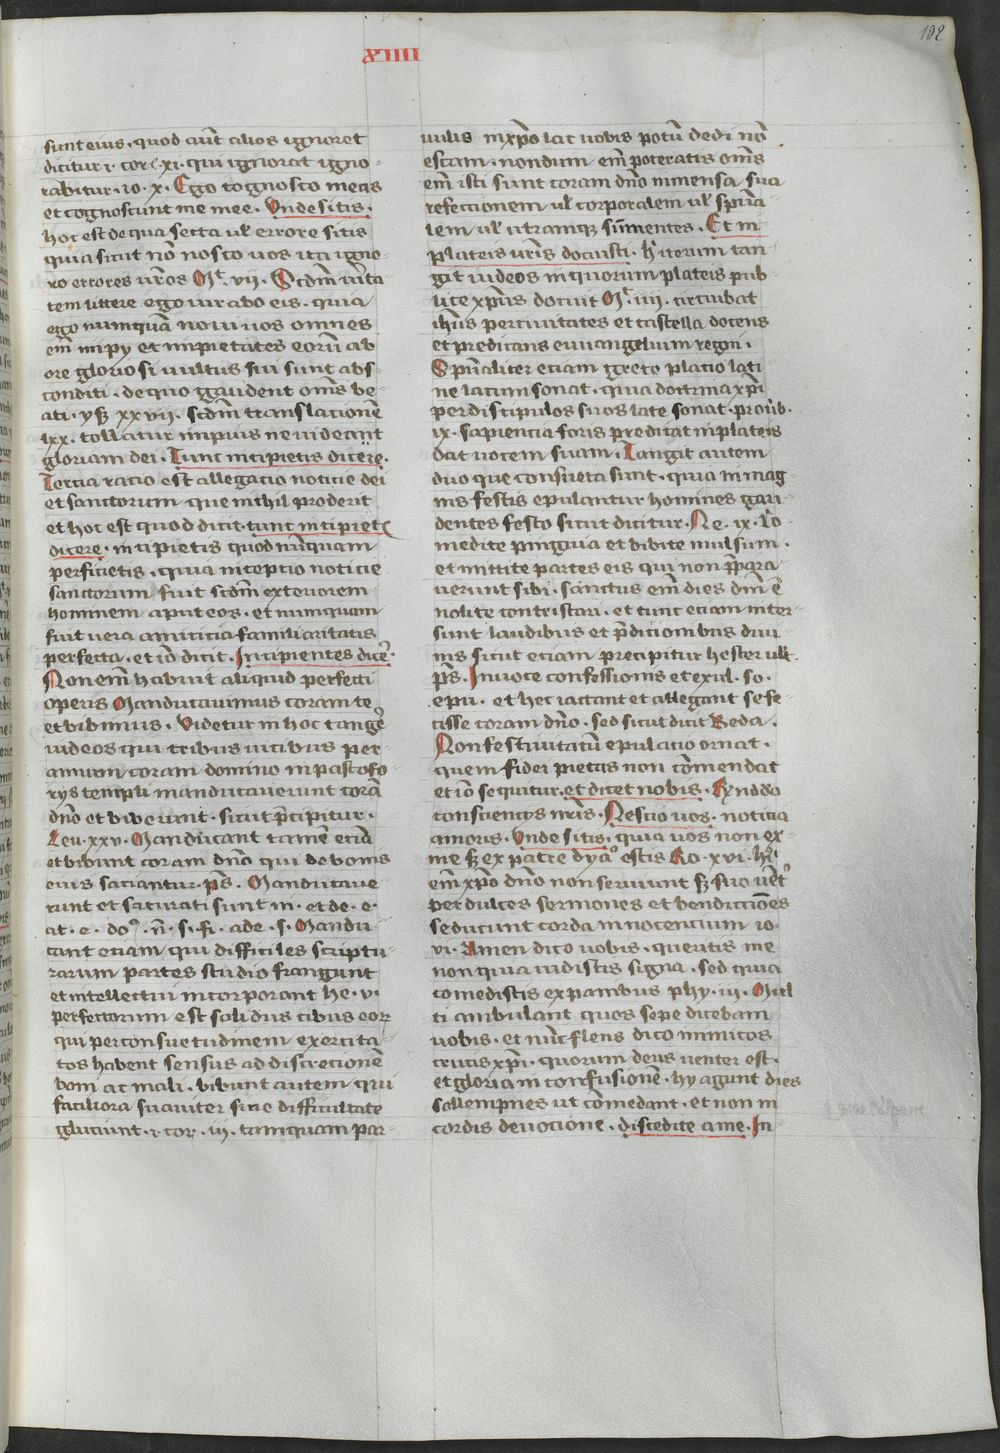 102
XIIII
sunt eius · quod aūt alios ignoret
dicitur 1 · cor · xi · qui ignorat igno-
rabitur · io · x · Ego cognosco meas
et cognoscunt me mee · Unde sitis ·
hoc est de qua secta ul' errore sitis
quia sicut nō nosco uos ita igno-
ro errores ur̄os Mt vii · Scdm̄ uita
tem littere ego iurabo eis · quia
ego numquā noui uos omnes
em̄ impy et impietates eorū ab
ore glorio si uultus sui sunt abs-
conditi · de quo ggaudent om̄s be-
ati · ys xxvii · scdm̄ translacionē
lxx · tollatur impius ne uideant
gloriam dei · Tunc incipietis dicere ·
Tercia racio est allegacio noticie dei
et sanctorum que nihil proderit
et hoc est quod dicit · tunc incipiet(
dicere · incipietis quod nūquam
perficietis · quia incepcio noticie
sanctorum fuit scdm̄ exteriorem
hominem aput eos · et numquam
fuit uera amiticia familiaritatis
perfecta · et iō dicit · Incipientes dice᷑ ·
Non em̄ habuit aliquid perfecti
operis Manducauimus coram te
et bibimus · Videtur in hoc tange᷑
iudeos qui tribus uicibus per
annum coram domino in pastofo
rys templi manducauerunt corā
dn̄o et biberunt · sicut p̄cipitur ·
Leu · xxv · Manducant tamē eciā
et bibunt coram dn̄o qui de bonis
eius saciantur · ps̄ · Manducaue-
runt et saturati sunt m · et de · e ·
at · e · do⁹ · n̄ · s · fi · a de · s · Mandu
cant eciam qui difficiles scriptu-
rarum partes studio frangunt
et intellectui incorporant he · v ·
perfectorum est solidus cibus eoꝝ
qui per consuetudinem exercita-
tos habent sensus ad discrecionē
boni ac mali · bibunt autem qui
faciliora suauiter sine difficultate
gluciunt · 1 · cor · iii · tamquam par-
uulis in xp̄o lac uobis potū dedi nō
escam · nondum em̄ poteratis om̄s
em̄ isti sunt coram dn̄o in mensa sua
refectionem ul' corporalem ul' sp̄ua
lem ul' utramqꝫ sūmentes · Et in
plateis ur̄is docuisti · h' iterum tan-
git iudeos in quorum plateis pub-
lice xp̄us docuit Mt iiii · circuibat
ih̄us per ciuitates et castella docens
et predicans euuangelium regni ·
Sp̄ualiter eciam grece platio lati
ne lacum sonat · quia doctrina xp̄i
per discipulos suos late sonat · prou̅b ·
ix · sapiencia foris predicat in plateis
dat uocem suam · Tangit autem
duo que consueta sunt · quia in mag
nis festis epulantur homines gau-
dentes festo sicut dicitur · Ne · ix · Co-
medite pinguia et bibite mulsum ·
et mittite partes eis qui non p̄para
uerunt sibi · sanctus em̄ dies dn̄i ē
nolite contristari · et tunc eciam inter-
sunt laudibus et p̄dicionibus diui
nis sicut eciam precipitur hester ult ·
ps̄ · In uoce confessionis et exul · so ·
epu · et hec iactant et allegant se fe-
cisse coram dn̄o · sed sicut dicit Beda ·
Non festiuitatū epulacio ornat ·
quem fidei pietas non cōmendat
et iō sequitur · et dicet uobis ·
conscienciis ur̄is · Nescio uos · noticia
amoris · Unde sitis · quia uos non ex
me sꝫ ex patre dya⁹ estis Ro · xvi · h⁹i
em̄ xp̄o dn̄o non seruiunt sꝫ suo uēt᷑
per dulces sermones et bendicciōes
seducunt corda innocencium io ·
vi · Amen dico uobis · queritis me
non quia uidistis signa · sed quia
comedistis ex panibus phy · iii · Mul
ti ambulant quos sepe dicebam
uobis · et nūc flens dico inimicos
crucis xp̄i · quorum deus uenter est ·
et gloria in confusionē · hy agunt dies
sollempnes ut cōmedant · et non in
cordis deuocione · discedite a me · In